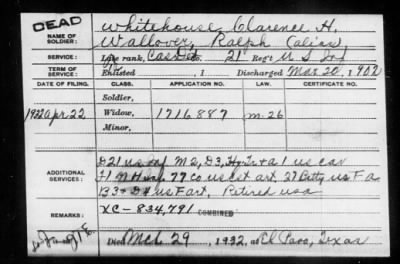 DEAD
Whitehouse, Clarence H.
NAME OF SOLDIER: Wallover, Ralph (alias)
SERVICE: Late rank, Cas Det 21" Reg't U S Inf
TERM OF SERVICE: Enlisted , 1 Discharged Mar 20, 1902
DATE OF FILING. CLASS. APPLICATION NO. LAW. CERTIFICATE NO.
Soldier,
1932 Apr 22 Widow, 1716887 M-26
Minor,
D 21 US Inf M 2, D3, Hq Tr & a 1 US Cav
ADDITIONAL SERVICES: 77 Co US Cst art. 27 Batty US F a
B 3 & D 4 US F art, Retired USA
REMARKS: XC-834,791 COMBINED
Died Mch 29, 1932, at El Paso, Texas